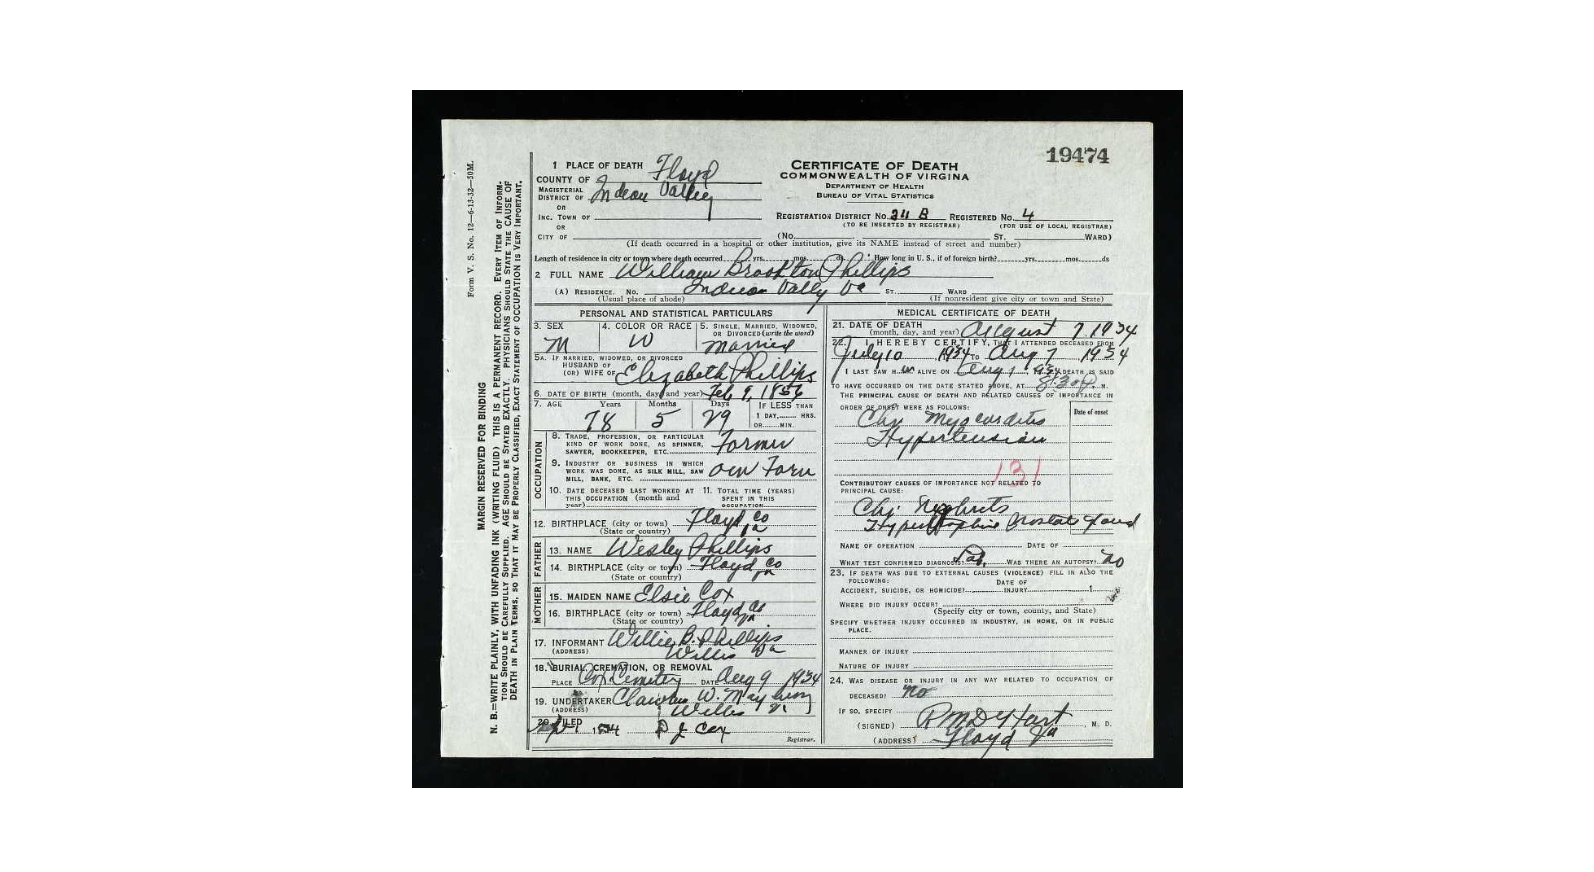 19474
CERTIFICATE OF DEATH
COMMONWEALTH OF VIRGINA
DEPARTMENT OF HEALTH
BUREAU OF VITAL STATISTICS
1 PLACE OF DEATH
COUNTY OF Floyd
MAGISTERIAL DISTRICT OF Indean Valley
OR
INC. TOWN OF
OR
CITY OF
REGISTRATION DISTRICT NO. 311 B REGISTERED NO. 4
(TO BE INSERTED BY REGISTRAR) (FOR USE OF LOCAL REGISTRAR)
(NO. ST. WARD)
(If death occurred in a hospital or other institution, give its NAME instead of street and number)
Length of residence in city or town where death occurred yrs. mos. ds. How long in U. S., if of foreign birth? yrs. mos. ds
2 FULL NAME William Phillips
(A) RESIDENCE. NO. Indean Vally Va ST. WARD
(Usual place of abode) (If nonresident give city or town and State)
PERSONAL AND STATISTICAL PARTICULARS
3. SEX M
4. COLOR OR RACE W
5. SINGLE, MARRIED, WIDOWED, OR DIVORCED (write the word) Married
5A. IF MARRIED, WIDOWED, OR DIVORCED
HUSBAND OF
(OR) WIFE OF Elizabeth Phillips
6. DATE OF BIRTH (month, day, and year) Feb 9, 1856
7. AGE Years 78 Months 5 Days 29 IF LESS THAN
1 DAY, HRS.
OR MIN.
OCCUPATION
8. TRADE, PROFESSION, OR PARTICULAR
KIND OF WORK DONE, AS SPINNER,
SAWYER, BOOKKEEPER, ETC. Farmer
9. INDUSTRY OR BUSINESS IN WHICH
WORK WAS DONE, AS SILK MILL, SAW
MILL, BANK, ETC. own Farm
10. DATE DECEASED LAST WORKED AT
THIS OCCUPATION (month and
year)
11. TOTAL TIME (YEARS)
SPENT IN THIS
OCCUPATION
12. BIRTHPLACE (city or town) Floyd Co
(State or country) Va
FATHER
13. NAME Wesley Phillips
14. BIRTHPLACE (city or town) Floyd Co
(State or country) Va
MOTHER
15. MAIDEN NAME Elsie Cox
16. BIRTHPLACE (city or town) Floyd Co
(State or country) Va
17. INFORMANT Willie B. Phillips
(ADDRESS) Willis Va
18. BURIAL, CREMATION, OR REMOVAL
PLACE Cox Cemetery DATE Aug 9 1934
19. UNDERTAKER W.
(ADDRESS) Willis Va
20. FILED 1934 D J Cox
Registrar.
MEDICAL CERTIFICATE OF DEATH
21. DATE OF DEATH
(month, day, and year) August 7 1934
22. I HEREBY CERTIFY, THAT I ATTENDED DECEASED FROM
July 10 1934 TO Aug 7 1934
I LAST SAW H im ALIVE ON Aug 1 1934 DEATH IS SAID
TO HAVE OCCURRED ON THE DATE STATED ABOVE, AT 8:30 P. M.
THE PRINCIPAL CAUSE OF DEATH AND RELATED CAUSES OF IMPORTANCE IN
ORDER OF ONSET WERE AS FOLLOWS:
Date of onset
Chr. Myocardites
Hypertension
131
CONTRIBUTORY CAUSES OF IMPORTANCE NOT RELATED TO
PRINCIPAL CAUSE:
Chr. Nephrits
Prostate gland
NAME OF OPERATION DATE OF
WHAT TEST CONFIRMED DIAGNOSIS? Lab. WAS THERE AN AUTOPSY? No
23. IF DEATH WAS DUE TO EXTERNAL CAUSES (VIOLENCE) FILL IN ALSO THE
FOLLOWING:
ACCIDENT, SUICIDE, OR HOMICIDE? DATE OF INJURY 1
WHERE DID INJURY OCCUR?
(Specify city or town, county, and State)
SPECIFY WHETHER INJURY OCCURRED IN INDUSTRY, IN HOME, OR IN PUBLIC
PLACE.
MANNER OF INJURY
NATURE OF INJURY
24. WAS DISEASE OR INJURY IN ANY WAY RELATED TO OCCUPATION OF
DECEASED? no
IF SO, SPECIFY
(SIGNED) , M. D.
(ADDRESS) Floyd Va
Form V. S. No. 12—6-13-32—50M.
MARGIN RESERVED FOR BINDING
N. B.—WRITE PLAINLY, WITH UNFADING INK (WRITING FLUID) THIS IS A PERMANENT RECORD. EVERY ITEM OF INFORM-
TION SHOULD BE CAREFULLY SUPPLIED. AGE SHOULD BE STATED EXACTLY. PHYSICIANS SHOULD STATE THE CAUSE OF
DEATH IN PLAIN TERMS, SO THAT IT MAY BE PROPERLY CLASSIFIED. EXACT STATEMENT OF OCCUPATION IS VERY IMPORTANT.